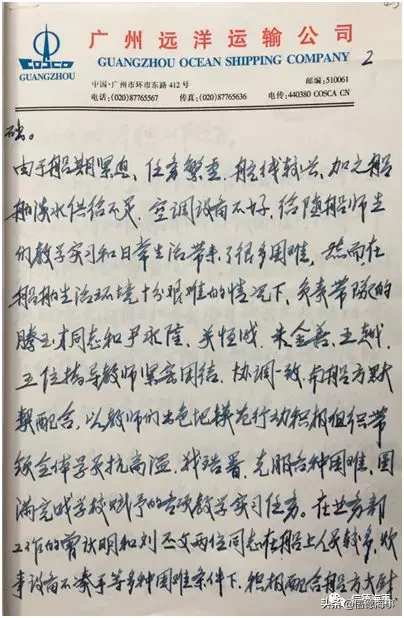 COSCO
GUANGZHOU
广州远洋运输公司
GUANGZHOU OCEAN SHIPPING COMPANY
2
中国·广州市环市东路 412 号
邮编:510061
电话:(020)87765567
传真:(020)87765636
电传:440380 COSCA CN
础。
由于船期紧急、任务繁重、航线较长、加之船
舶淡水供给不足、空调设备不好,给随船师生
们教学实习和日常生活带来了很多困难,然而在
船舶生活环境十分艰难的情况下,负责带队的
腾玉才同志和尹永隆、关恒成、朱金善、王越、
五位指导教师紧密团结、协调一致,与船方默
契配合,以教师们出色的模范行动积极组织带
领全体学员抗高温、战酷暑,克服各种困难,圆
满完成学校赋予的各项教学实习任务。在业务部
工作的曾庆明和刘正文两位同志在船上人员较多,炊
事设备不凑手等多种困难条件下,积极配合船方大厨
头条@信德海事
信德海事